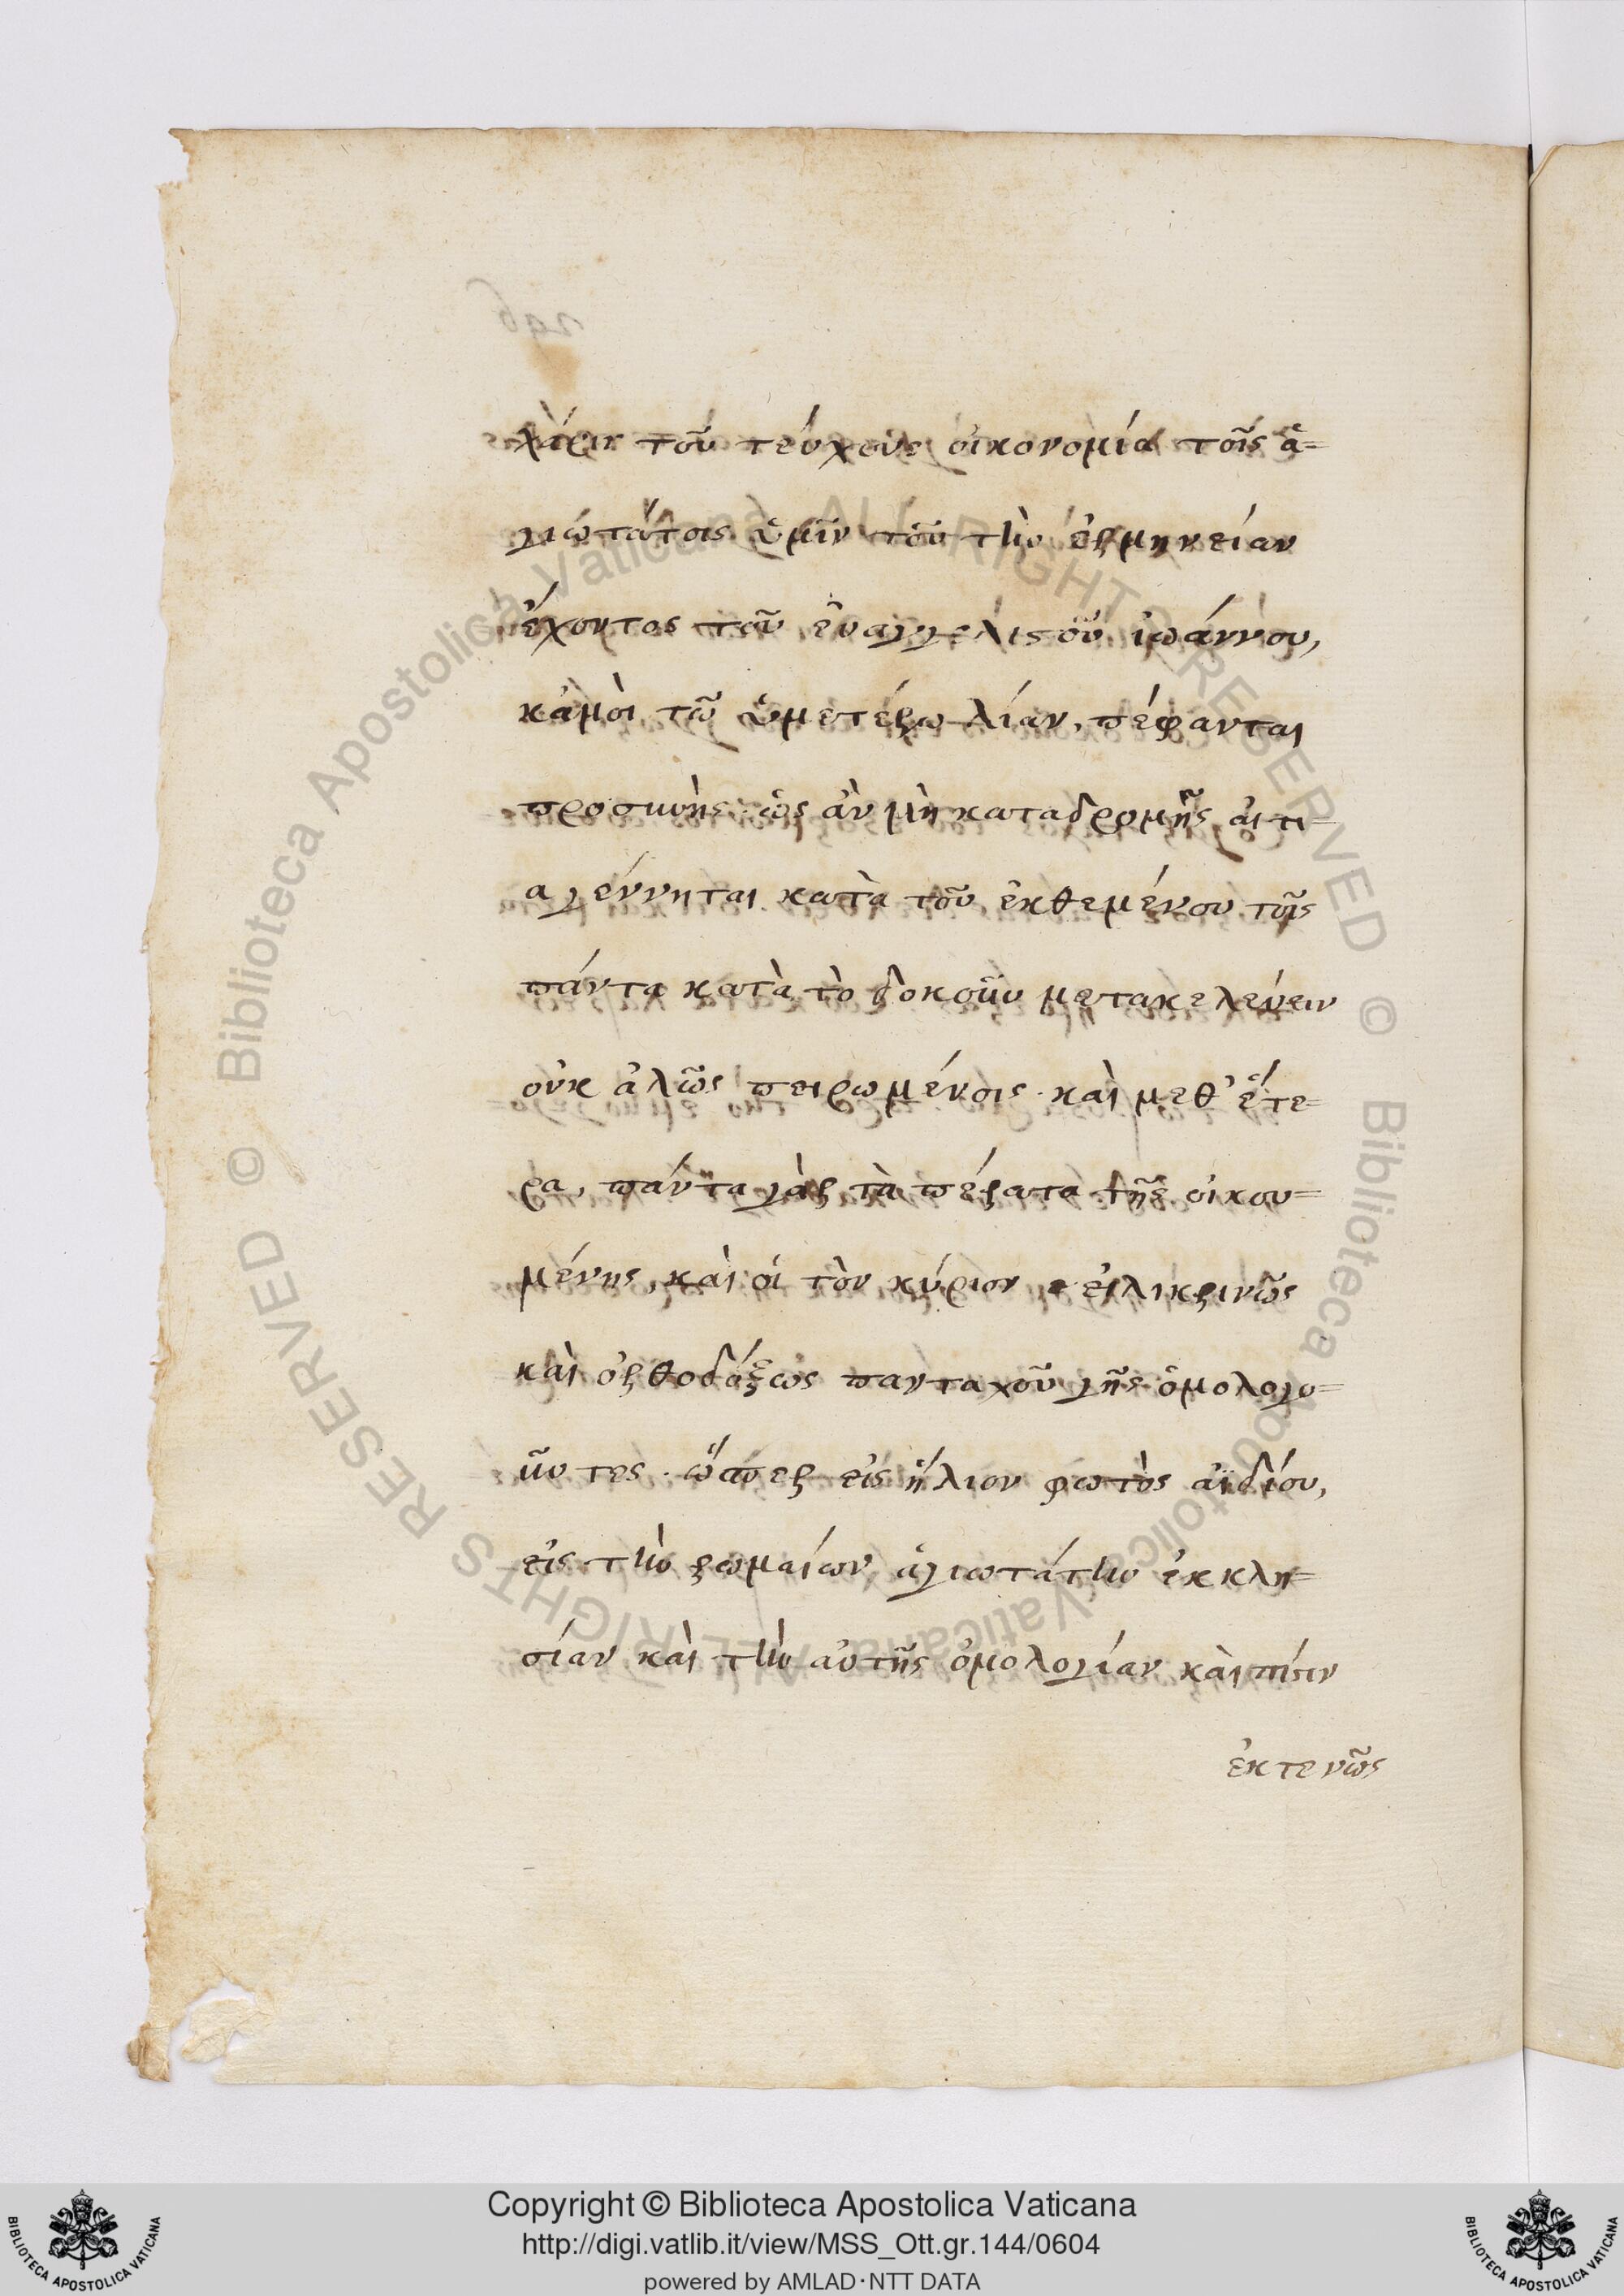 χάριν τοῦ τεύχους οἰκονομία τοῖς ἁ=
γιωτάτοις ὑμῖν τοῦ τὴν ἑρμηνείαν
ἔχοντος τοῦ εὐαγγελιστοῦ ἰωάννου,
κἀμοὶ τῶ ὑμετέρω λίαν, πέφανται
προσηνὴς ὡς ἂν μὴ καταδρομῆς αἰτι=
α γέννηται κατὰ τοῦ ἐκθεμένου τοῖς
πάντα κατὰ τὸ δοκοῦν μετακελεύειν
οὐκ ἀλῶς πειρωμένοις. καὶ μεθ' ἕτε=
ρα, πάντα γὰρ τὰ πέρατα τῆς οἰκου=
μένης, καὶ οἱ τὸν κύριον εἰλικρινῶς
καὶ ὀρθοδόξως πανταχοῦ γῆς ὁμολογο=
ῦντες. ὥσπερ εἰς ἥλιον φωτὸς ἀϊδίου,
εἰς τὴν ῥωμαίων ἁγιωτάτην ἐκκλη=
σίαν καὶ τὴν αὐτῆς ὁμολογίαν καὶ πίστιν
ἐκτενῶς
296
Copyright © Biblioteca Apostolica Vaticana
http://digi.vatlib.it/view/MSS_Ott.gr.144/0604
powered by AMLAD·NTT DATA
BIBLIOTECA APOSTOLICA VATICANA
BIBLIOTECA APOSTOLICA VATICANA
© Biblioteca Apostolica Vaticana ALL RIGHTS RESERVED © Biblioteca Apostolica Vaticana ALL RIGHTS RESERVED